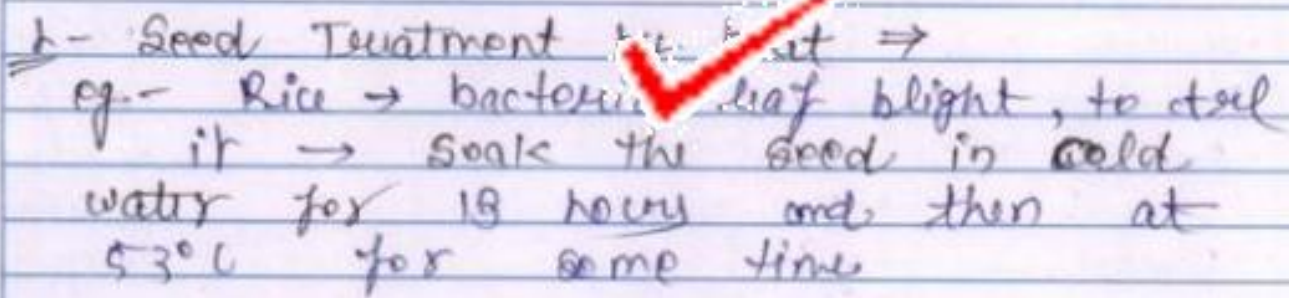 1- Seed Treatment ⇒
eg.- Rice → blight, to ctrl
it → Soak the seed in cold
water for 18 hours and then at
53°C for some time